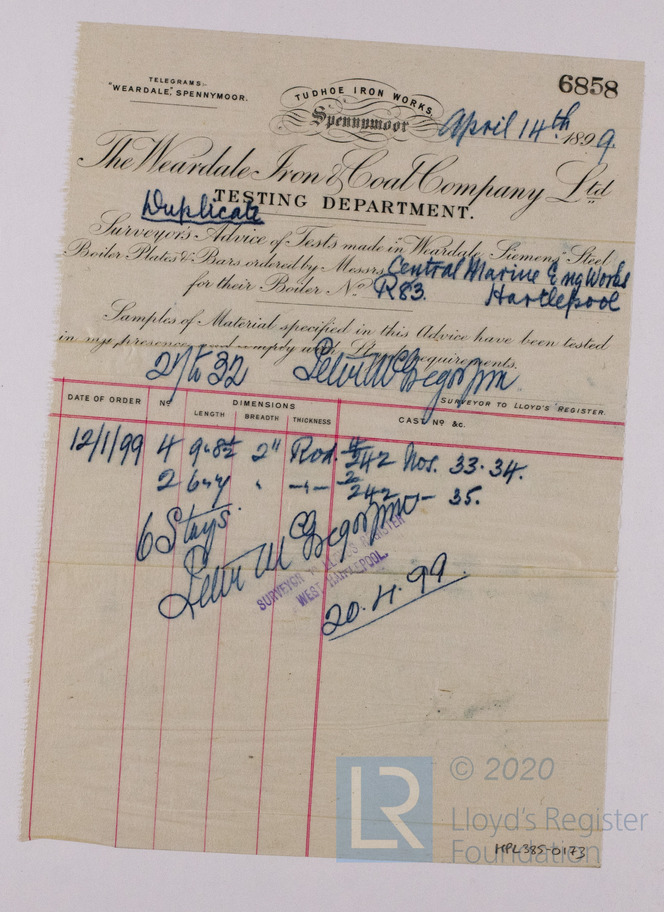 TELEGRAMS:-
"WEARDALE," SPENNYMOOR.
6858
TUDHOE IRON WORKS
Spennymoor
April 14th 1899.
The Weardale Iron & Coal Company Ltd
TESTING DEPARTMENT.
Duplicate
Surveyor's Advice of Tests made in Weardale Siemens' Steel
Boiler Plates & Bars ordered by Messrs Central Marine Eng Works
for their Boiler No R83. Hartlepool
Samples of Material specified in this Advice have been tested
in my presence and comply with requirements.
27 to 32 Peter McGregor
SURVEYOR TO LLOYD'S REGISTER.
DATE OF ORDER No DIMENSIONS LENGTH BREADTH THICKNESS CAST No &c.
12/1/99 4 9-8½ 2" Rod. 4/242 Nos. 33.34.
2 2/242 35.
6 Stays.
Peter McGregor
SURVEYOR TO LLOYD'S REGISTER
WEST HARTLEPOOL.
20.4.99.
LR
© 2020
Lloyd's Register
Foundation
HPL385-0173